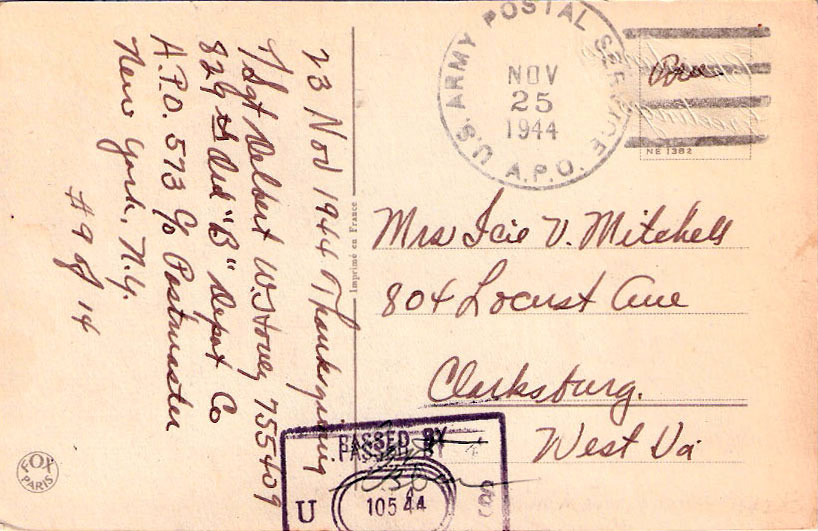 23 Nov 1944 Thanksgiving
T/Sgt Delbert W. Stovey 755409
829 th Ord "B" Depot Co
A.P.O. 573 c/o Postmaster
New York, N.Y.
#9 of 14
Imprimé en France
U.S. ARMY POSTAL SERVICE A.P.O.
NOV
25
1944
NE 1382
Mrs Icie V. Mitchell
804 Locust Ave
Clarksburg.
West Va
PASSED BY
U
10544
FOX
PARIS